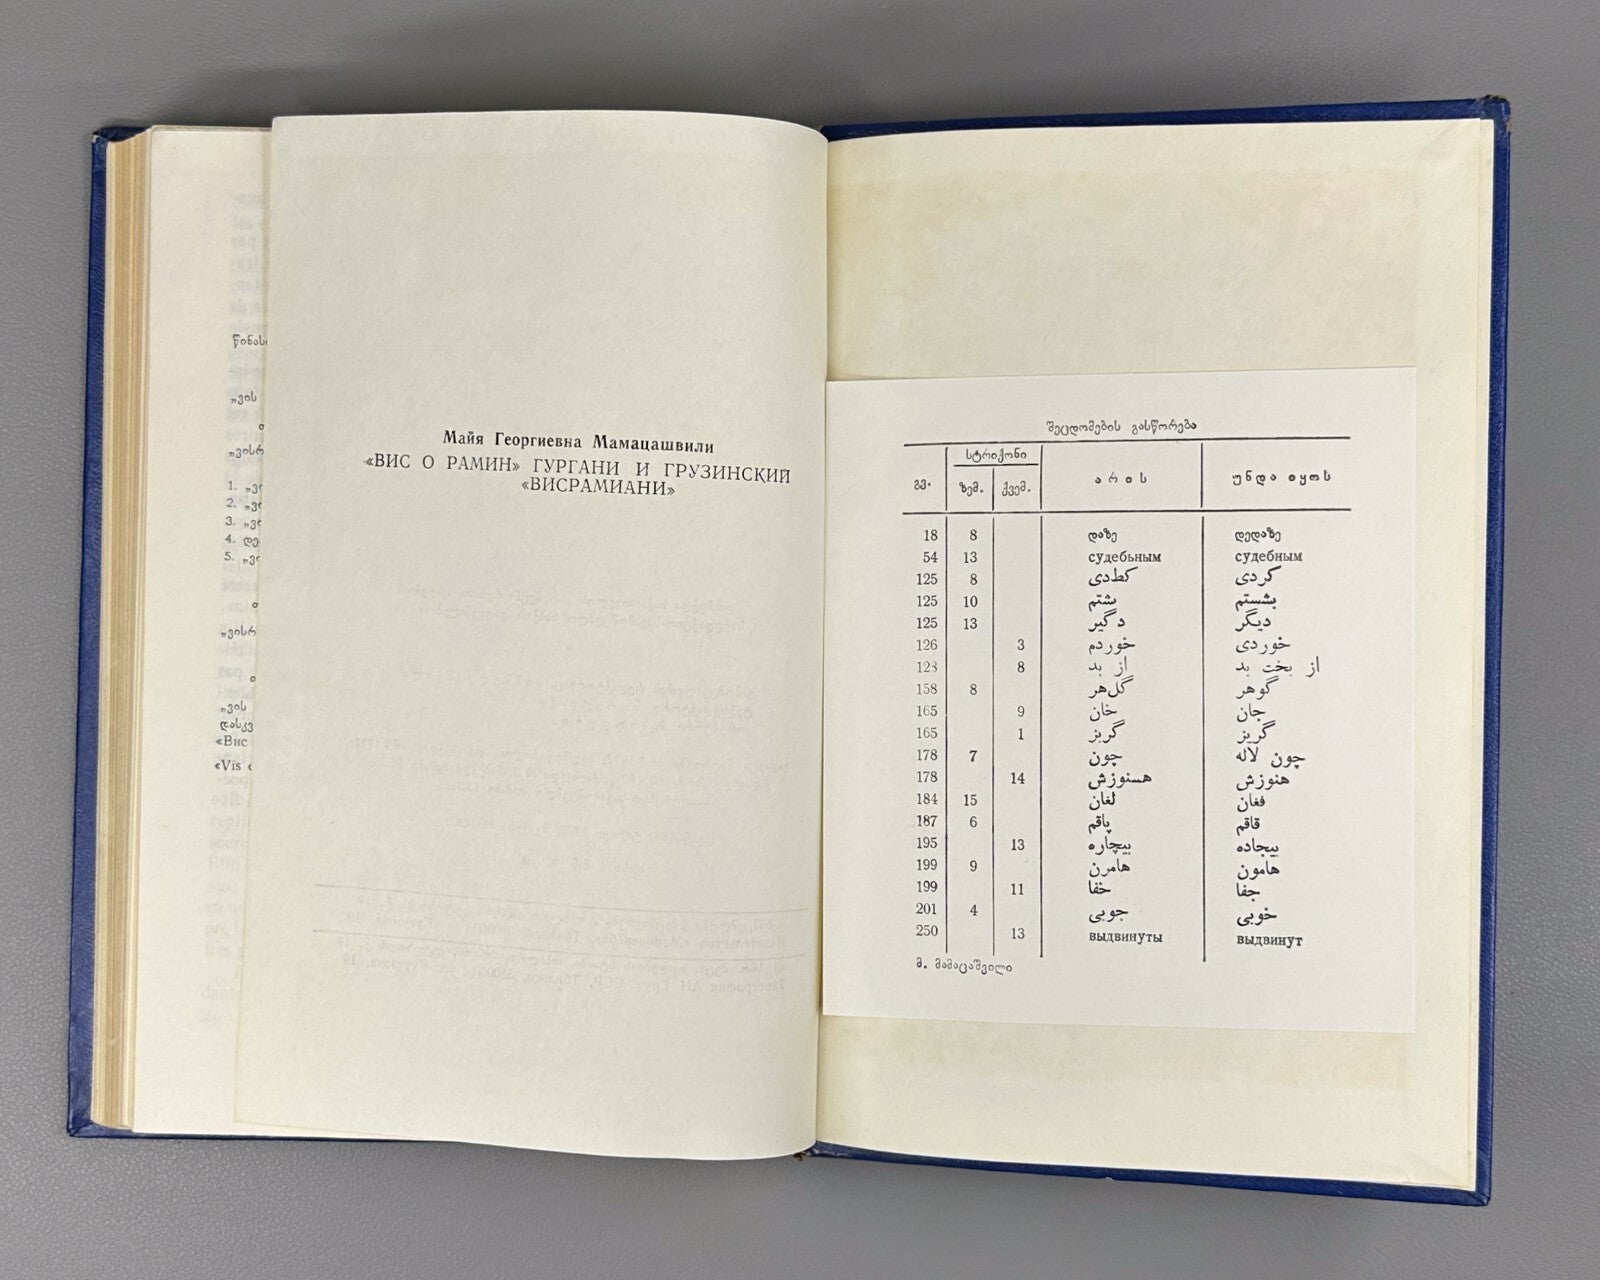 „ვის
„ვისრ
1. „ვ
2. „ვ
3. „ვ
4. დე
5. „ვ
„ვისრ
„ვის
დასკვ
«Вис
«Vis
Майя Георгиевна Мамацашвили
«ВИС О РАМИН» ГУРГАНИ И ГРУЗИНСКИЙ
«ВИСРАМИАНИ»
შეცდომების გასწორება
გვ. სტრიქონი არის უნდა იყოს
ზემ. ქვემ.
18 8 დაზე დედაზე
54 13 судебьным судебным
125 8 كطدی كردی
125 10 بشتم بشستم
125 13 دگير ديگر
126 3 خوردم خوردی
123 8 از بد از بخت بد
158 8 گل‌هر گوهر
165 9 خان جان
165 1 گربز گريز
178 7 چون چون لاله
178 14 هسنوزش هنوزش
184 15 لغان فغان
187 6 پاقم قاقم
195 13 بيچاره بيجاده
199 9 هامرن هامون
199 11 خفا جفا
201 4 جوبی خوبی
250 13 выдвинуты выдвинут
მ. მამაცაშვილი